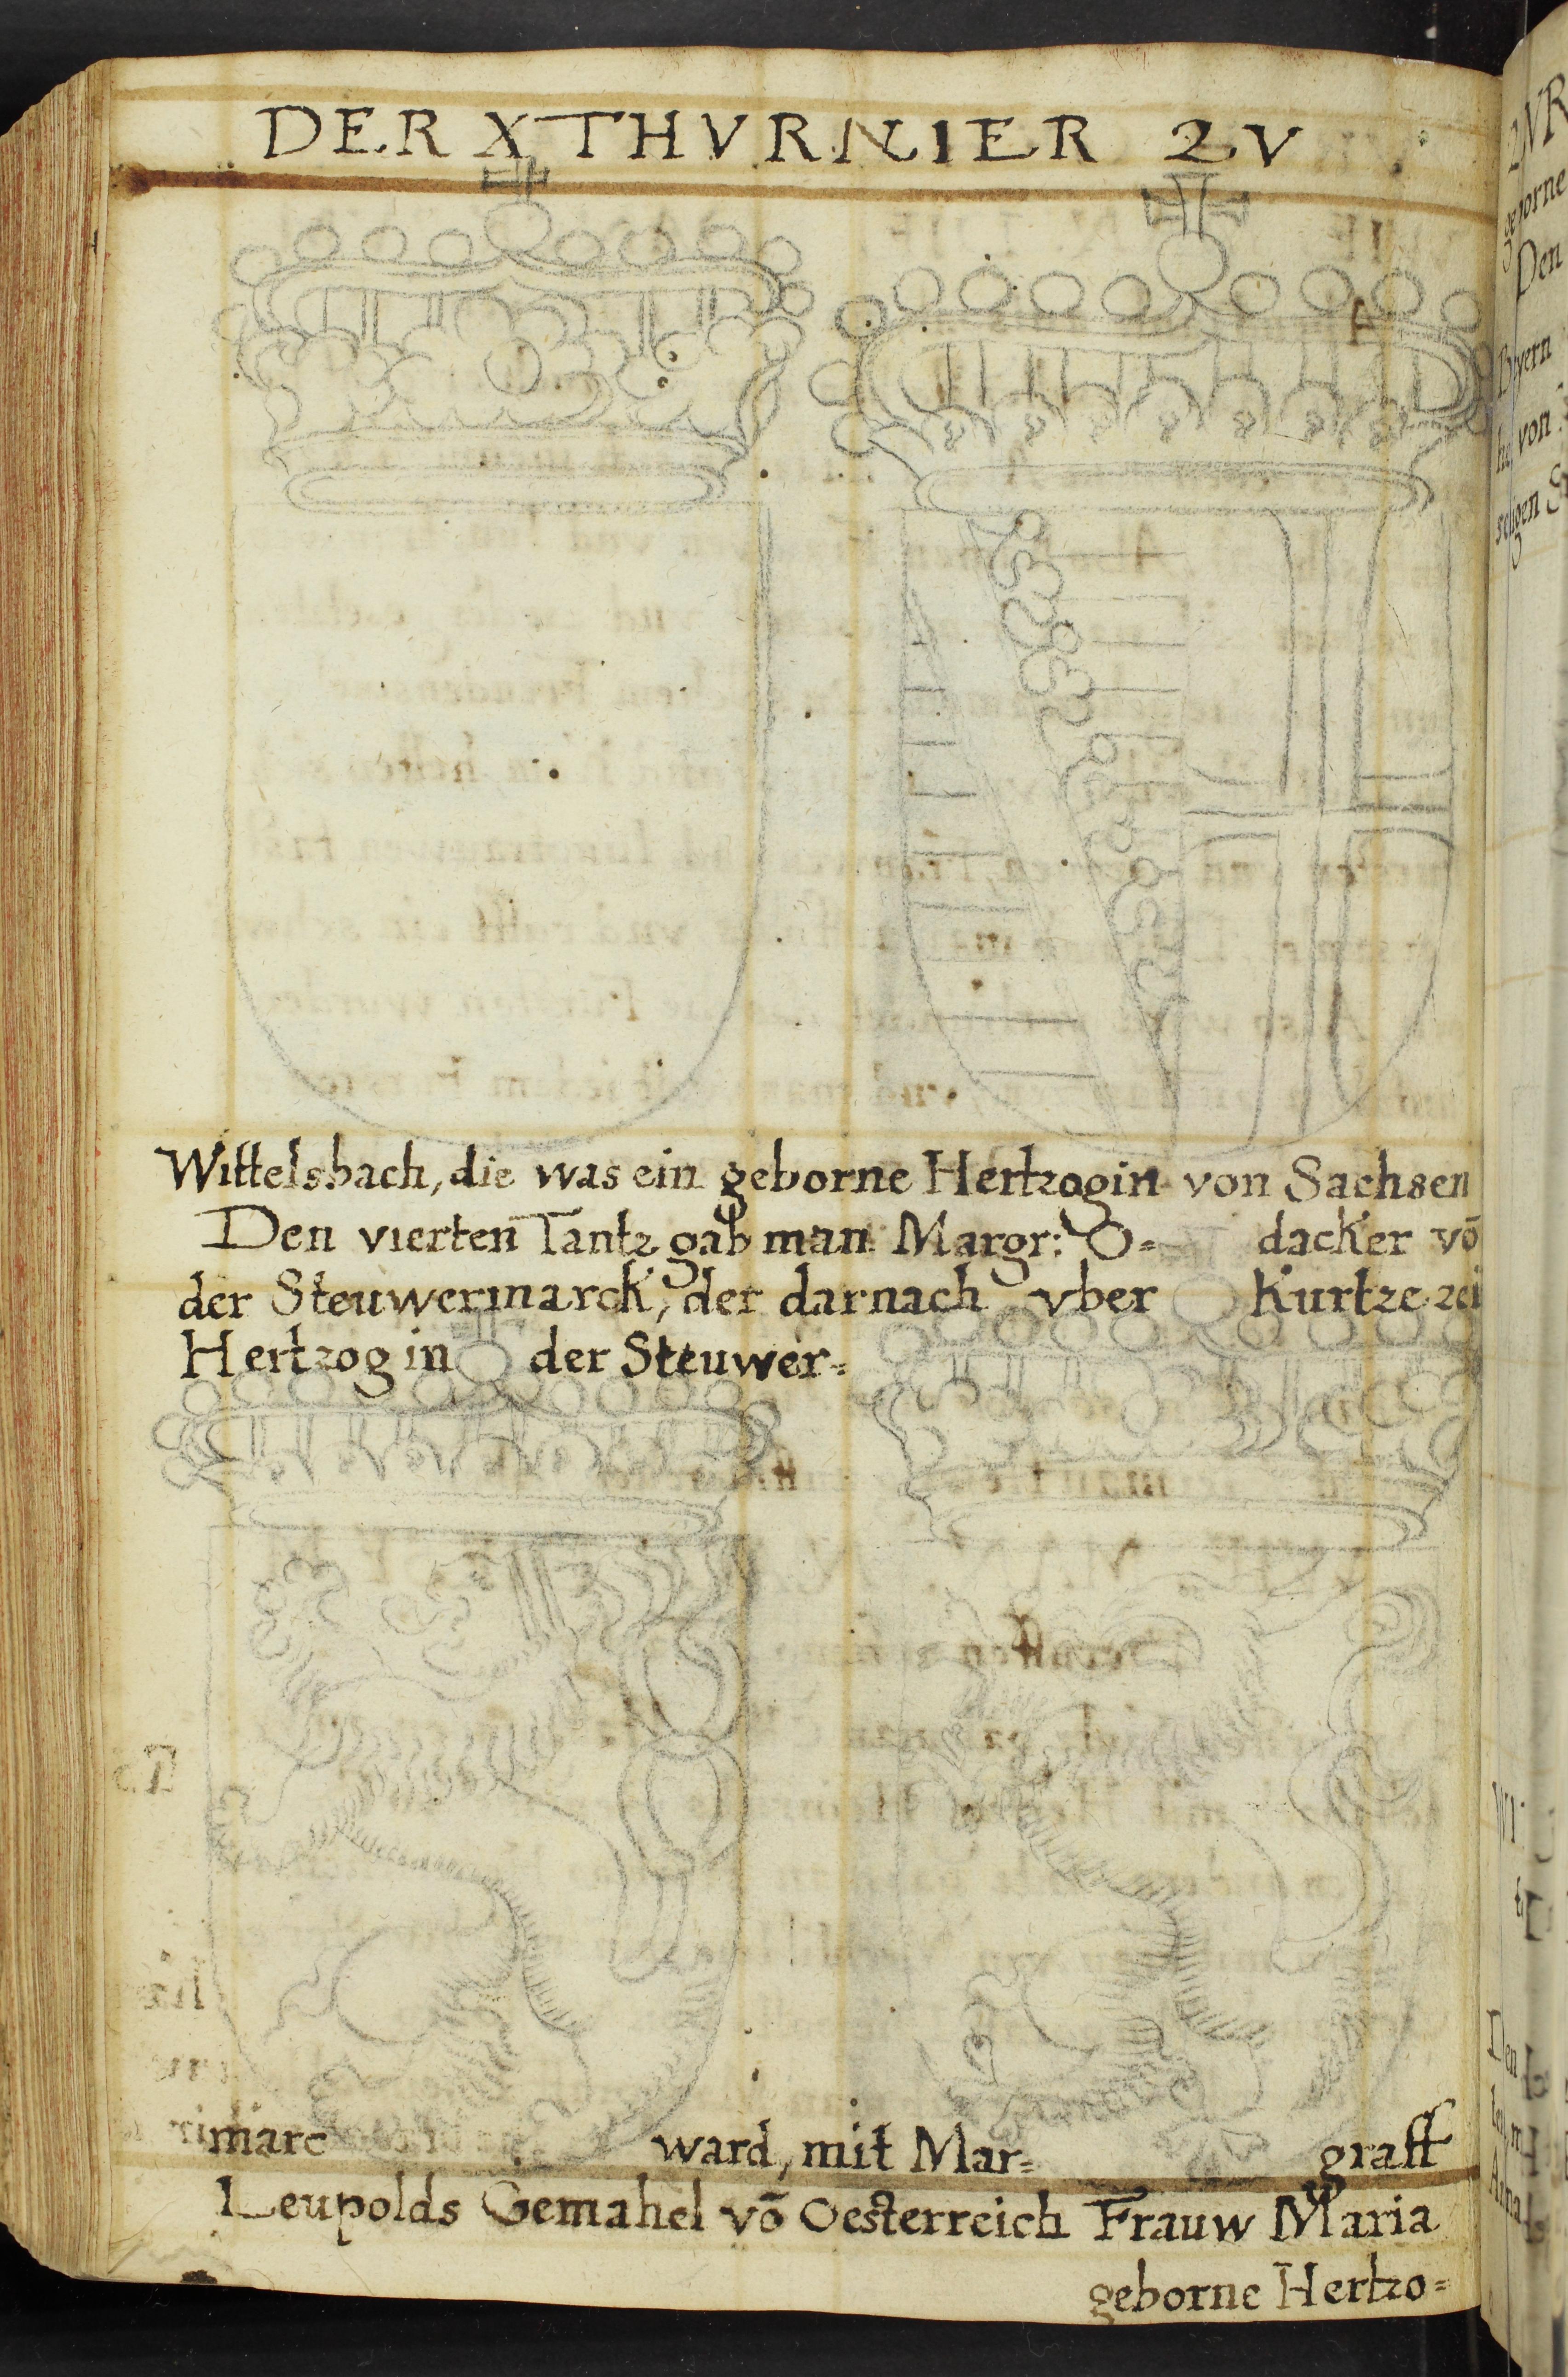 DER X THVRNIER ZV
Wittelsbach, die was ein geborne Hertzogin von Sachsen
Den vierten Tantz gab man Margr: O= dacker võ
der Steuwermarck, der darnach vber Kurtze zei
Hertzog in der Steuwer=
marc ward, mit Mar= graff
Leupolds Gemahel võ Oesterreich Frauw Maria
geborne Hertzo=